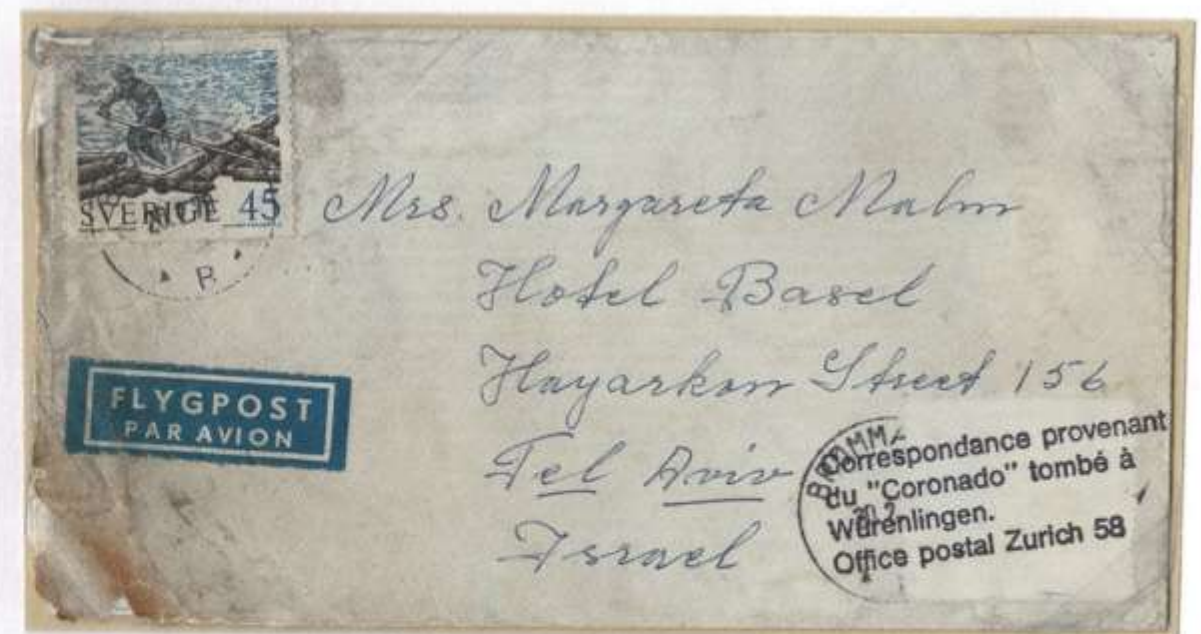 SVERIGE 45
B
FLYGPOST
PAR AVION
Mrs. Margareta Malm
Hotel Basel
Hayarkon Street 156
Tel Aviv
Israel
BROMMA
20.2
Correspondance provenant
du "Coronado" tombé à
Würenlingen.
Office postal Zurich 58